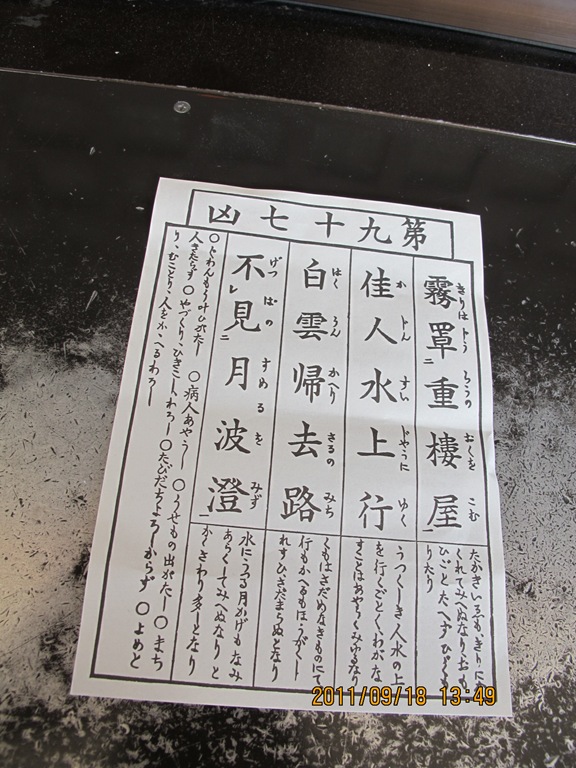 第九十七凶
霧罩重樓屋
佳人水上行
白雲帰去路
不見月波澄
きりは とう ろうの おくを こむ
か じん すい じやうに ゆく
はく うん かへり さるの みち
げつ ぱの すめるを みず
たかきいろもきりに
くれてみへぬなり
りたり
うつくしき人水の上
を行くごとくわがな
すことはあやうくみゆるなり
くもはさだめなきものにて
行もかへるもほうがくし
れすひさだまらぬとなり
水にうつる月かげもなみ
あらくしてみへぬなりと
かくさわり多しとなり
○よろこび
○病人あやうし ○うせもの出がたし ○まち
人きたらず ○やづくりひきこしわろし ○たびだちよろしからず ○よめと
り、むことり、人をかゝへるわろし
2011/09/18 13:49